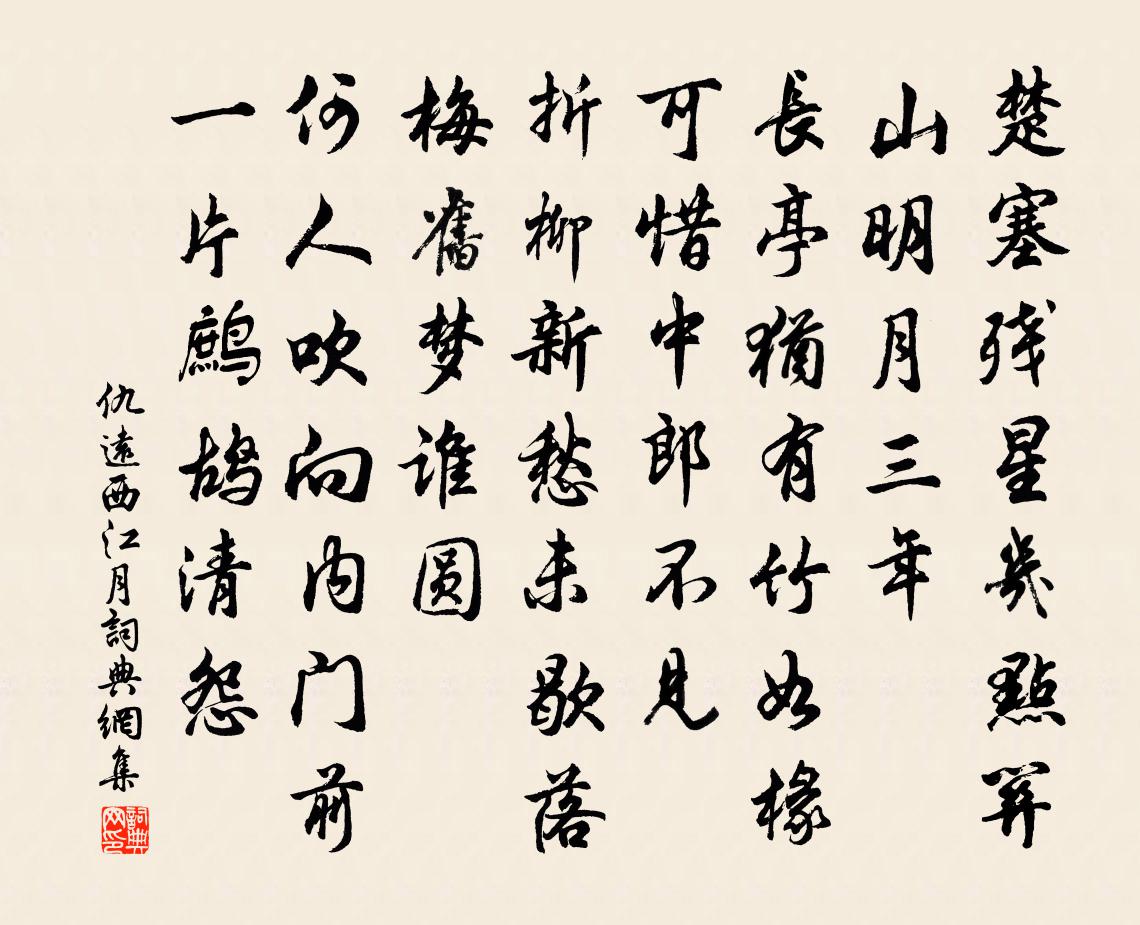 楚塞残星幾點关
山明月三年
長亭猶有竹如椽
可惜中郎不見
折柳新愁未歇落
梅舊梦谁圆
何人吹向内门前
一片鷓鸪清怨
仇遠西江月詞典網集
詞典网印